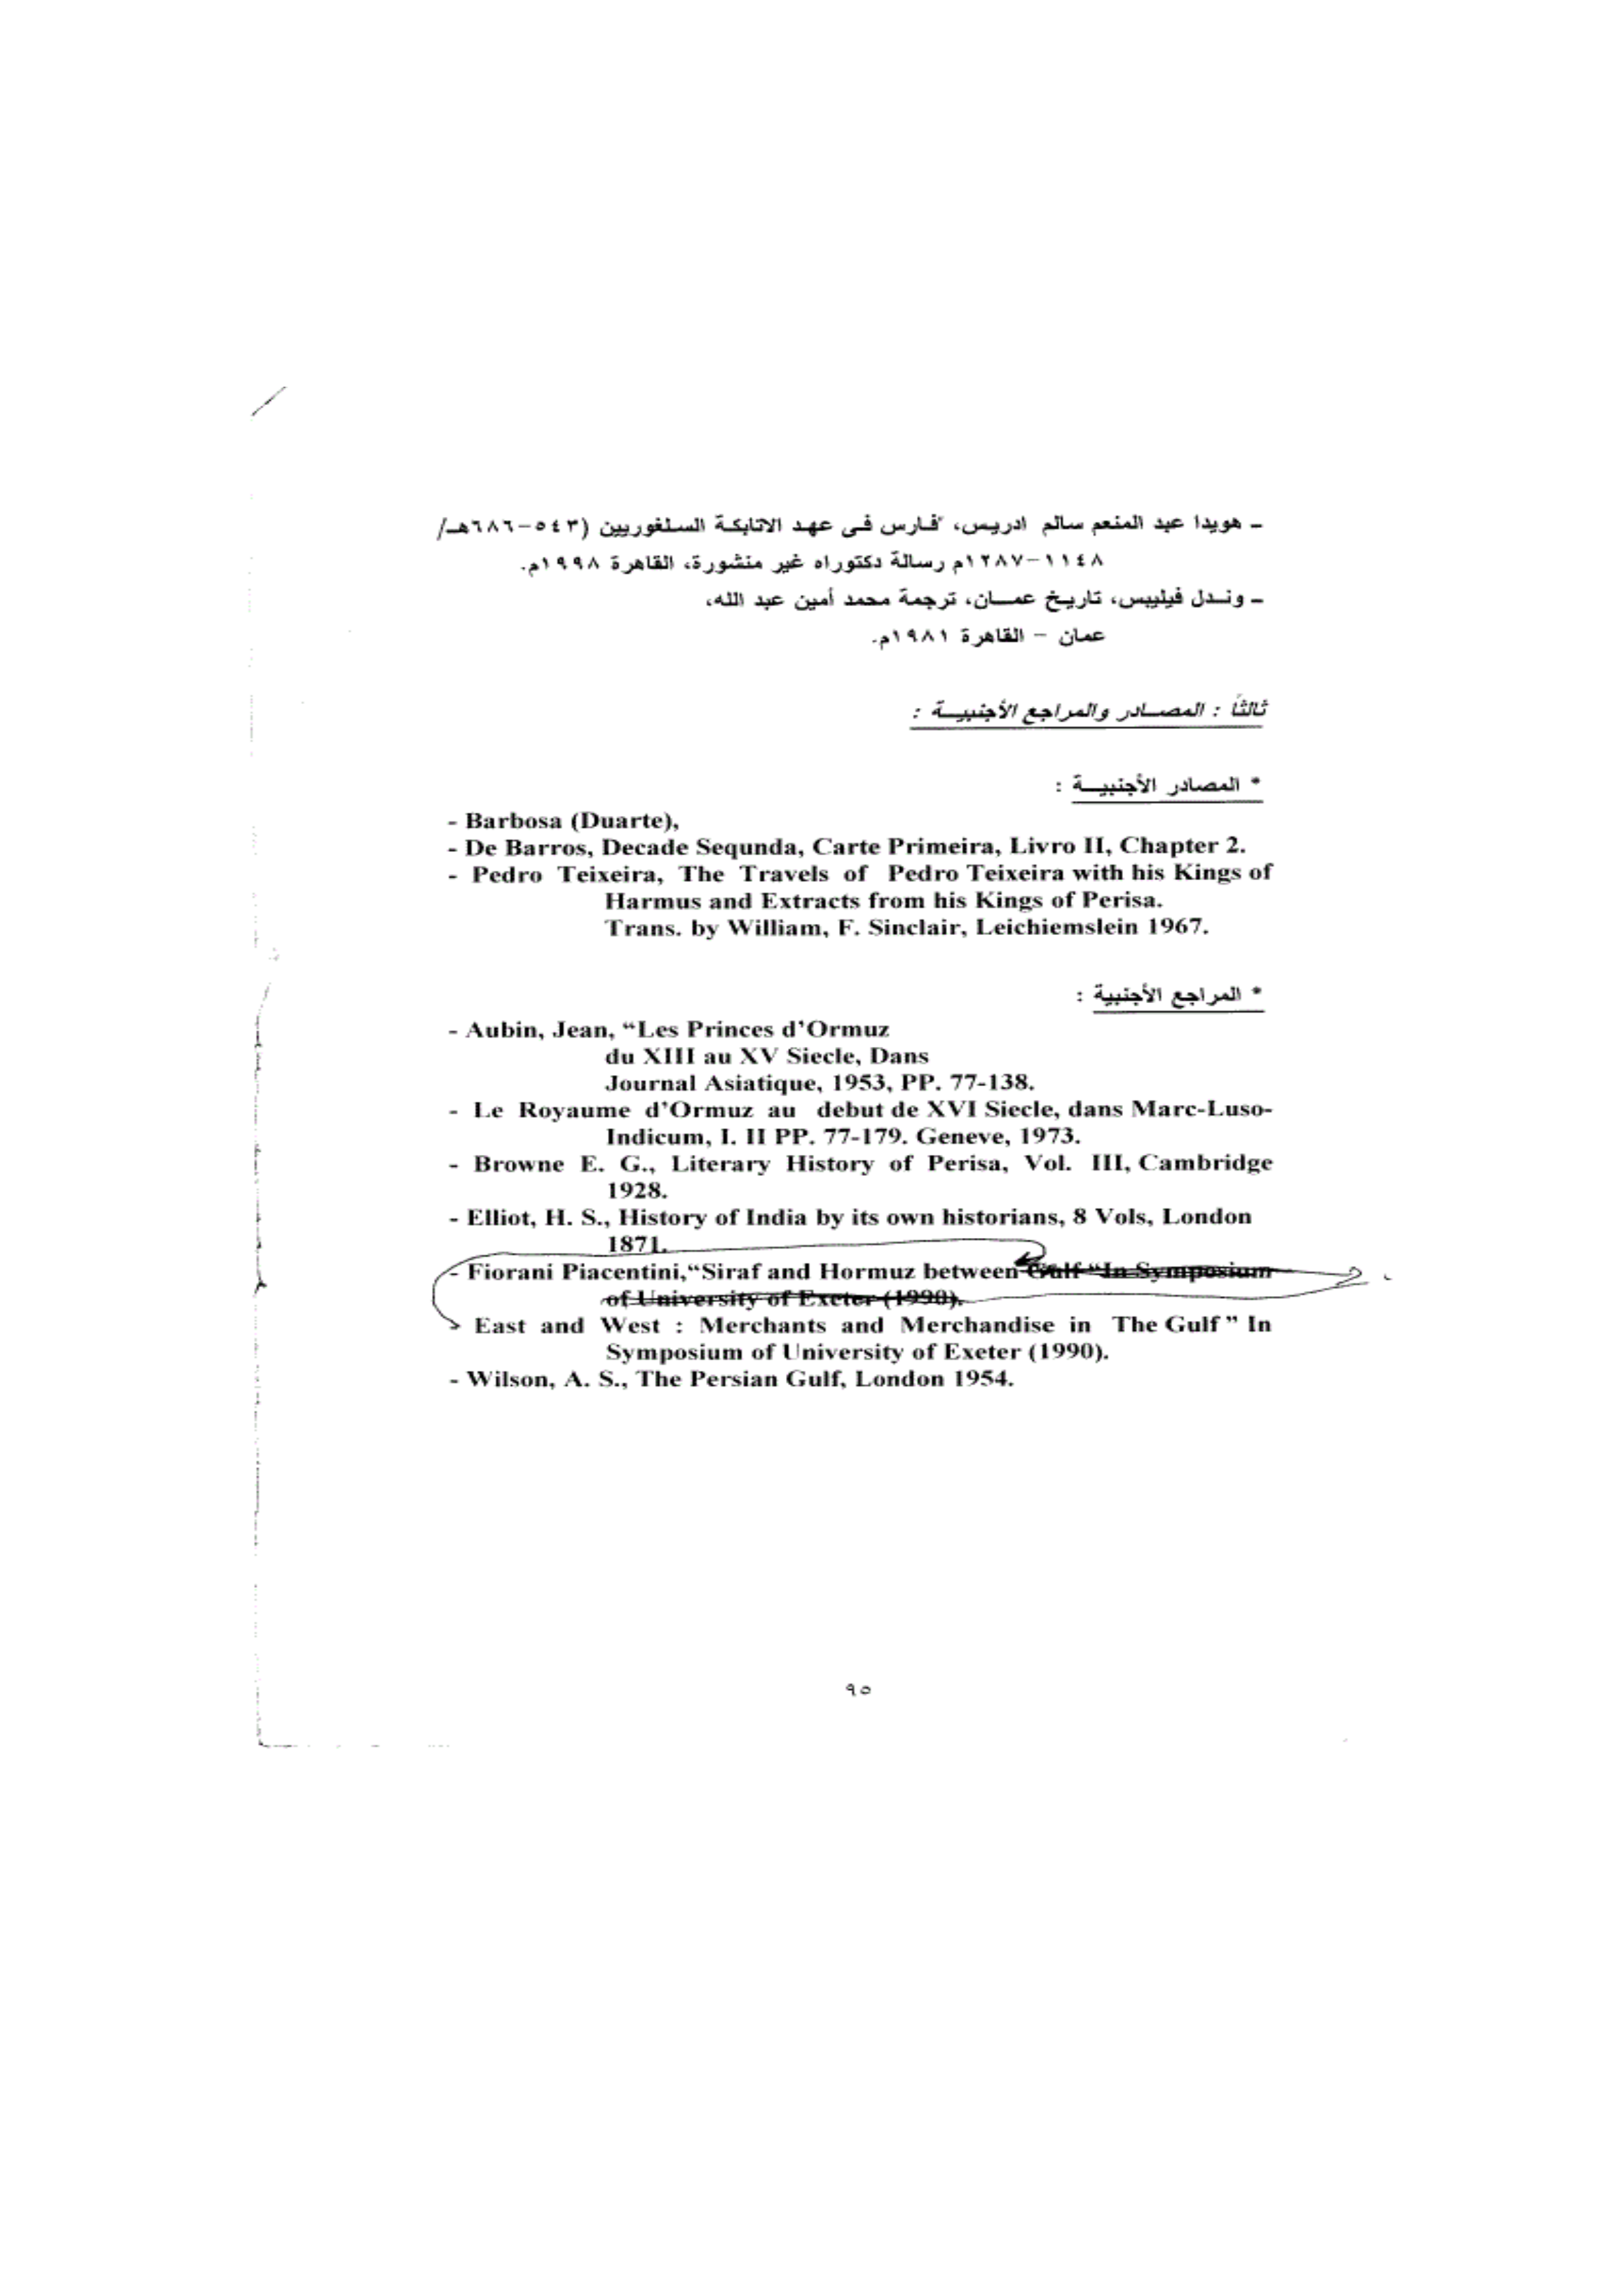 ـ هويدا عبد المنعم سالم ادريس، "فارس فى عهد الاتابكة السلغوريين (٥٤٣-٦٨٦هـ/
١١٤٨-١٢٨٧م رسالة دكتوراه غير منشورة، القاهرة ١٩٩٨م.
ـ وندل فيليبس، تاريخ عمان، ترجمة محمد أمين عبد الله،
عمان - القاهرة ١٩٨١م.
ثالثاً : المصادر والمراجع الأجنبية :
* المصادر الأجنبية :
- Barbosa (Duarte),
- De Barros, Decade Sequnda, Carte Primeira, Livro II, Chapter 2.
- Pedro Teixeira, The Travels of Pedro Teixeira with his Kings of
Harmus and Extracts from his Kings of Perisa.
Trans. by William, F. Sinclair, Leichiemslein 1967.
* المراجع الأجنبية :
- Aubin, Jean, “Les Princes d’Ormuz
du XIII au XV Siecle, Dans
Journal Asiatique, 1953, PP. 77-138.
- Le Royaume d’Ormuz au debut de XVI Siecle, dans Marc-Luso-
Indicum, I. II PP. 77-179. Geneve, 1973.
- Browne E. G., Literary History of Perisa, Vol. III, Cambridge
1928.
- Elliot, H. S., History of India by its own historians, 8 Vols, London
1871.
- Fiorani Piacentini,“Siraf and Hormuz between Gulf “In Symposium
of University of Exeter (1990).
East and West : Merchants and Merchandise in The Gulf ” In
Symposium of University of Exeter (1990).
- Wilson, A. S., The Persian Gulf, London 1954.
٩٥